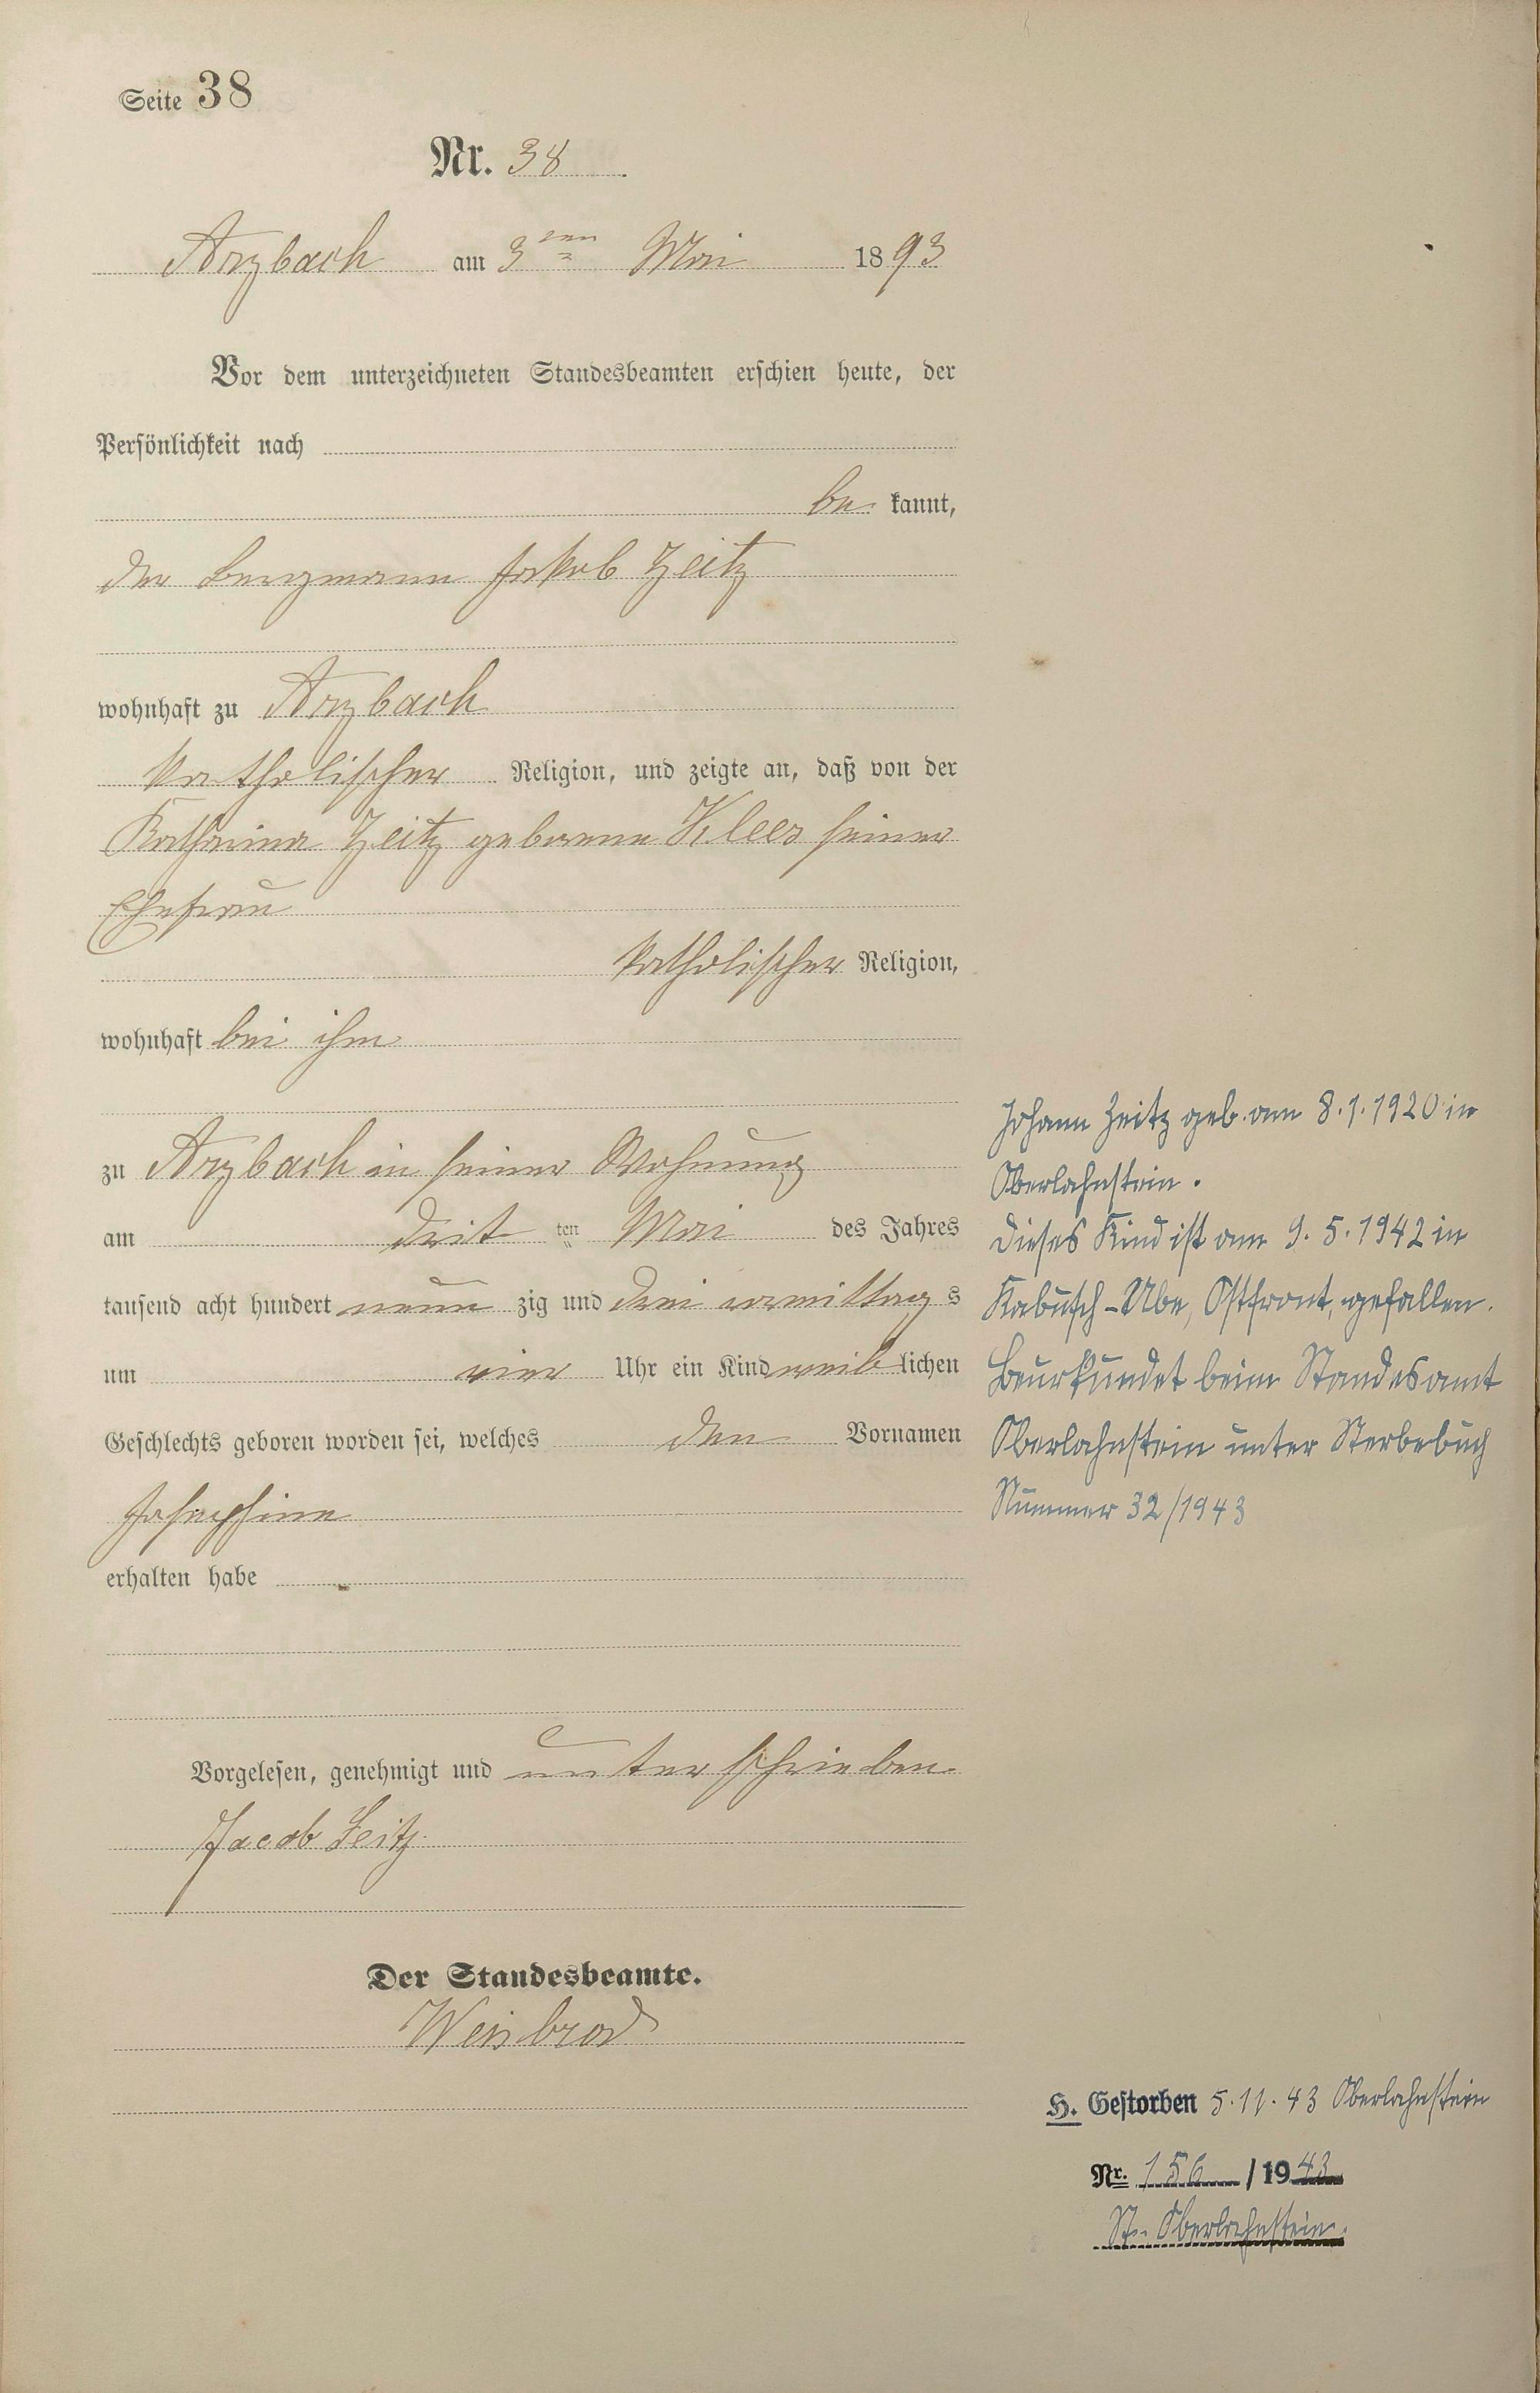 Seite 38
Nr. 38
Arzbach am 3ten Mai 1893
Vor dem unterzeichneten Standesbeamten erschien heute, der
Persönlichkeit nach
be kannt,
der Bergmann Jakob Zeitz
wohnhaft zu Arzbach
katholischer Religion, und zeigte an, daß von der
Katharina Zeitz geborene Klees seiner
Ehefrau
katholischer Religion,
wohnhaft bei ihm
zu Arzbach in seiner Wohnung
am dritten Mai des Jahres
tausend acht hundert neun zig und drei vormittags
um vier Uhr ein Kind weiblichen
Geschlechts geboren worden sei, welches den Vornamen
Josephine
erhalten habe
Vorgelesen, genehmigt und unterschrieben
Jacob Zeitz
Der Standesbeamte.
Weisbrod
Johann Zeitz geb. am 8.1.1920 in
Oberlahnstein.
Dieses Kind ist am 9.5.1942 in
Kabusch-Ube, Ostfront, gefallen.
Beurkundet beim Standesamt
Oberlahnstein unter Sterbebuch
Nummer 32/1943
H. Gestorben 5.11.43 Oberlahnstein
Nr. 156 / 1943
St. Oberlahnstein.